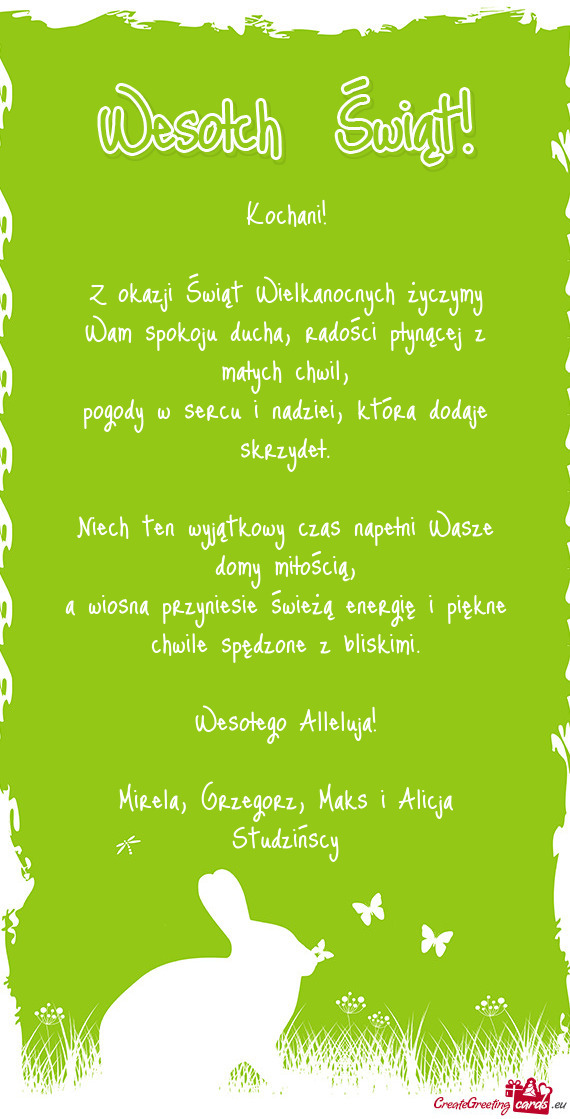 Wesołch Świąt!
Kochani!
Z okazji Świąt Wielkanocnych życzymy
Wam spokoju ducha, radości płynącej z
małych chwil,
pogody w sercu i nadziei, która dodaje
skrzydeł.
Niech ten wyjątkowy czas napełni Wasze
domy miłością,
a wiosna przyniesie świeżą energię i piękne
chwile spędzone z bliskimi.
Wesołego Alleluja!
Mirela, Grzegorz, Maks i Alicja
Studzińscy
CreateGreeting cards .eu